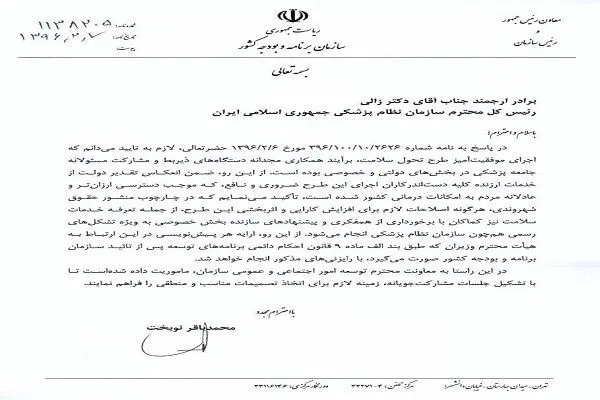 ریاست جمهوری
سازمان برنامه و بودجه کشور
معاون رئیس جمهور
و
رئیس سازمان
۱۱۳۸۲۰۵
۱۳۹۶,۲,۷
بسمه تعالی
برادر ارجمند جناب آقای دکتر زالی
رئیس کل محترم سازمان نظام پزشکی جمهوری اسلامی ایران
باسلام و احترام؛
در پاسخ به نامه شماره ۳۹۶/۱۰۰/۱۰/۲۶۲۶ مورخ ۱۳۹۶/۲/۶ حضرتعالی، لازم به تایید می‌دانم که
اجرای موفقیت‌آمیز طرح تحول سلامت، برآیند همکاری مجدانه دستگاه‌های ذیربط و مشارکت مسئولانه
جامعه پزشکی در بخش‌های دولتی و خصوصی بوده است. از این رو، ضمن انعکاس تقدیر دولت از
خدمات ارزنده کلیه دست‌اندرکاران اجرای این طرح ضروری و نافع، که موجب دسترسی ارزان‌تر و
عادلانه مردم به امکانات درمانی کشور شده است، تأکید می‌نمایم که در چارچوب منشور حقوق
شهروندی، هرگونه اصلاحات لازم برای افزایش کارایی و اثربخشی این طرح، از جمله تعرفه خدمات
سلامت نیز کماکان با برخورداری از همفکری و پیشنهادهای سازنده بخش خصوصی به ویژه تشکل‌های
رسمی هم‌چون سازمان نظام پزشکی انجام می‌شود. از این رو، ارایه هر پیش‌نویسی در این ارتباط به
هیأت محترم وزیران که طبق بند الف ماده ۹ قانون احکام دائمی برنامه‌های توسعه پس از تائید سازمان
برنامه و بودجه کشور صورت می‌گیرد، با رایزنی‌های مذکور انجام خواهد شد.
در این راستا به معاونت محترم توسعه امور اجتماعی و عمومی سازمان، ماموریت داده شده‌است تا
با تشکیل جلسات مشارکت‌جویانه، زمینه لازم برای اتخاذ تصمیمات مناسب و منطقی را فراهم نمایند.
با احترام مجدد
محمدباقر نوبخت
تهران - میدان بهارستان - خیابان دانشسرا مرکز تلفن: ۴-۳۳۲۷۱ دورنگار مرکزی: ۳۳۱۱۶۱۳۶